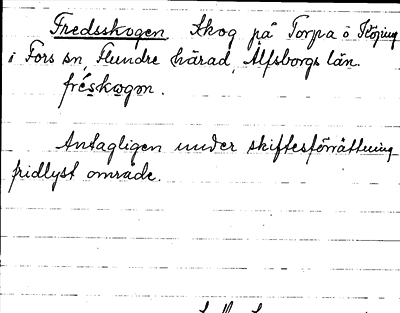 Fredsskogen. Skog på Torpa ö Töping
i Fors sn, Flundre härad, Älfsborgs län.
fréskogən.
Antagligen under skiftesförrättning
fridlyst område.